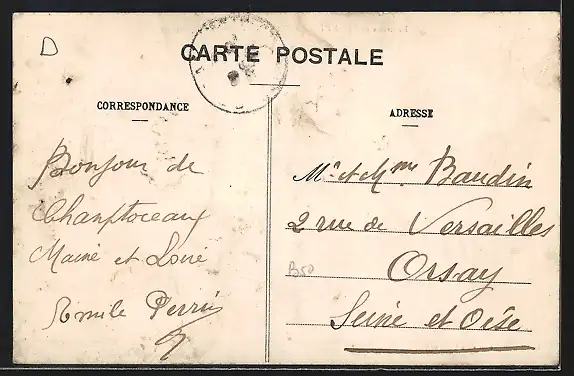 D
CARTE POSTALE
CORRESPONDANCE
Bonjour de
Champtoceaux
Maine et Loire
Emile Perrin
ADRESSE
Mr et Mme Baudin
2 rue de Versailles
Orsay
B50
Seine et Oise